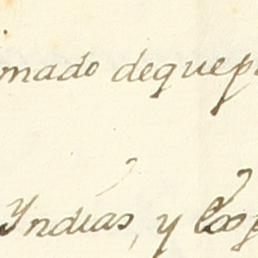 mado dequep
Yndias, y Coo